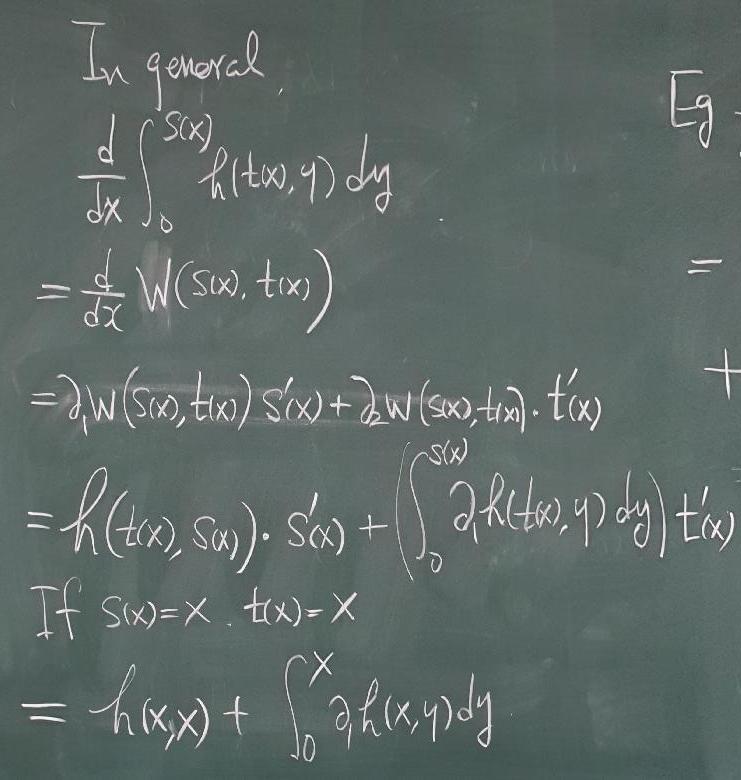 In general,
d/dx ∫₀^{S(x)} h(t(x), y) dy
= d/dx W(S(x), t(x))
= ∂₁W(S(x), t(x)) S'(x) + ∂₂W(S(x), t(x)) · t'(x)
= h(t(x), S(x)) · S'(x) + (∫₀^{S(x)} ∂₁h(t(x), y) dy) t'(x)
If S(x) = x . t(x) = x
= h(x,x) + ∫₀^x ∂₁h(x, y) dy
Eg
=
+